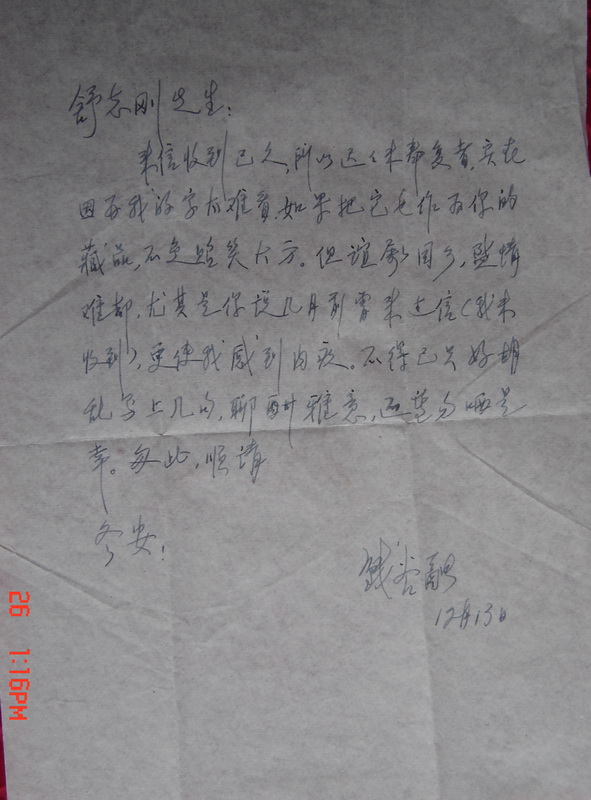 舒志刚先生：
来信收到已久，所以迟迟未都复者，实在
因为我的字太难看，如果把它也作为你的
藏品，不免贻笑大方。但谊属同乡，盛情
难却，尤其是你说几月前曾来过信（我未
收到），更使我感到内疚。不得已只好胡
乱写上几句，聊酬雅意，还望勿哂是
幸。匆此，顺请
冬安！
钱谷融
12月13日
26 1:16PM